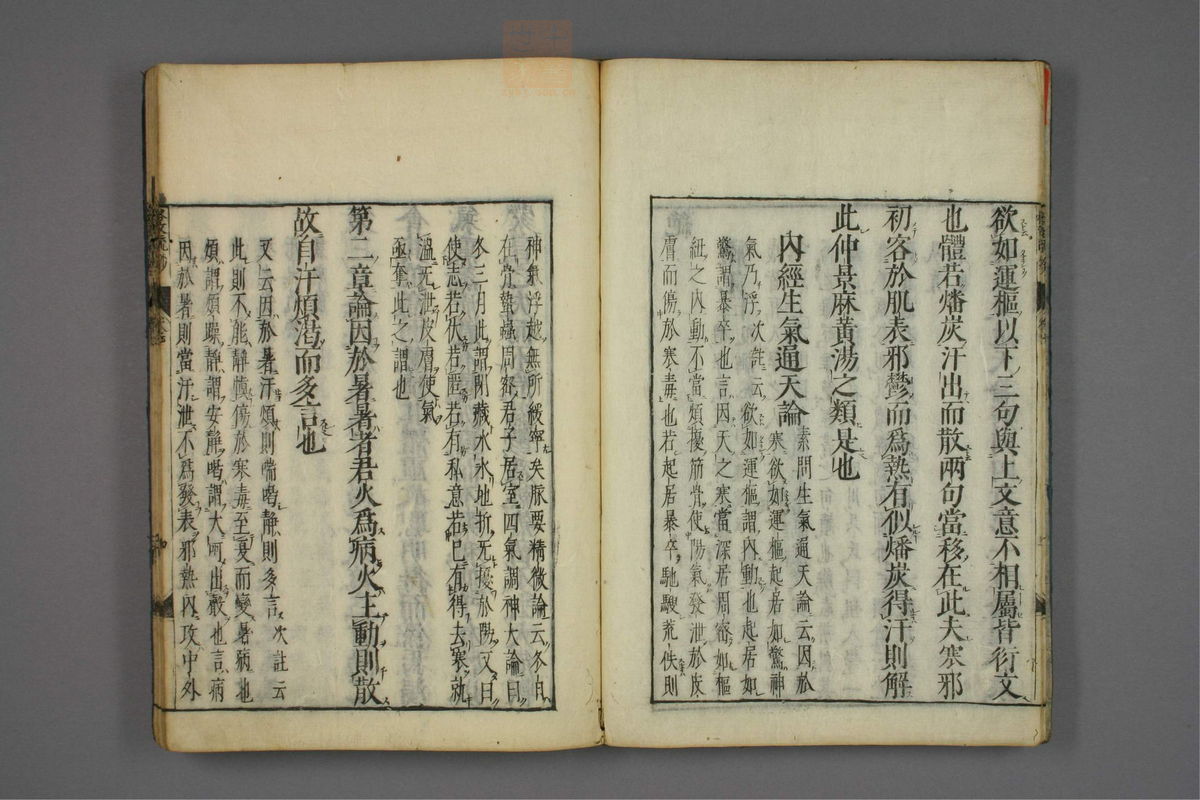 欲如運樞以下三句與上文意不相屬皆衍文
也體若燔炭汗出而散兩句當移在此夫寒邪
初客於肌表邪鬱而爲熱有似燔炭得汗則解
此仲景麻黃湯之類是也
內經生氣通天論
素問生氣通天論云因於
寒欲如運樞起居如驚神
氣乃浮次註云欲如運樞謂內動也起居如
驚謂暴卒也言因天之寒當深居周密如樞
紐之內動不當煩擾筋骨使陽氣發泄於皮
膚而傷於寒毒也若起居暴卒馳騁荒佚則
神氣浮越無所綏寧矣脉要精微論云冬日
在骨蟄蟲周密君子居室四氣調神大論曰
冬三月此謂閉藏水氷地坼无擾於陽又曰
使志若伏若匿若有私意若已有得去寒就
溫无泄皮膚使氣
亟奪此之謂也
第二章論因於暑暑者君火爲病火主動則散
故自汗煩渴而多言也
又云因於暑汗煩則喘喝靜則多言次註云
此則不能靜慎傷於寒毒至夏而變暑病也
煩謂煩躁靜謂安靜喝謂大呵出聲也言病
因於暑則當汗泄不爲發表邪熱內攻中外